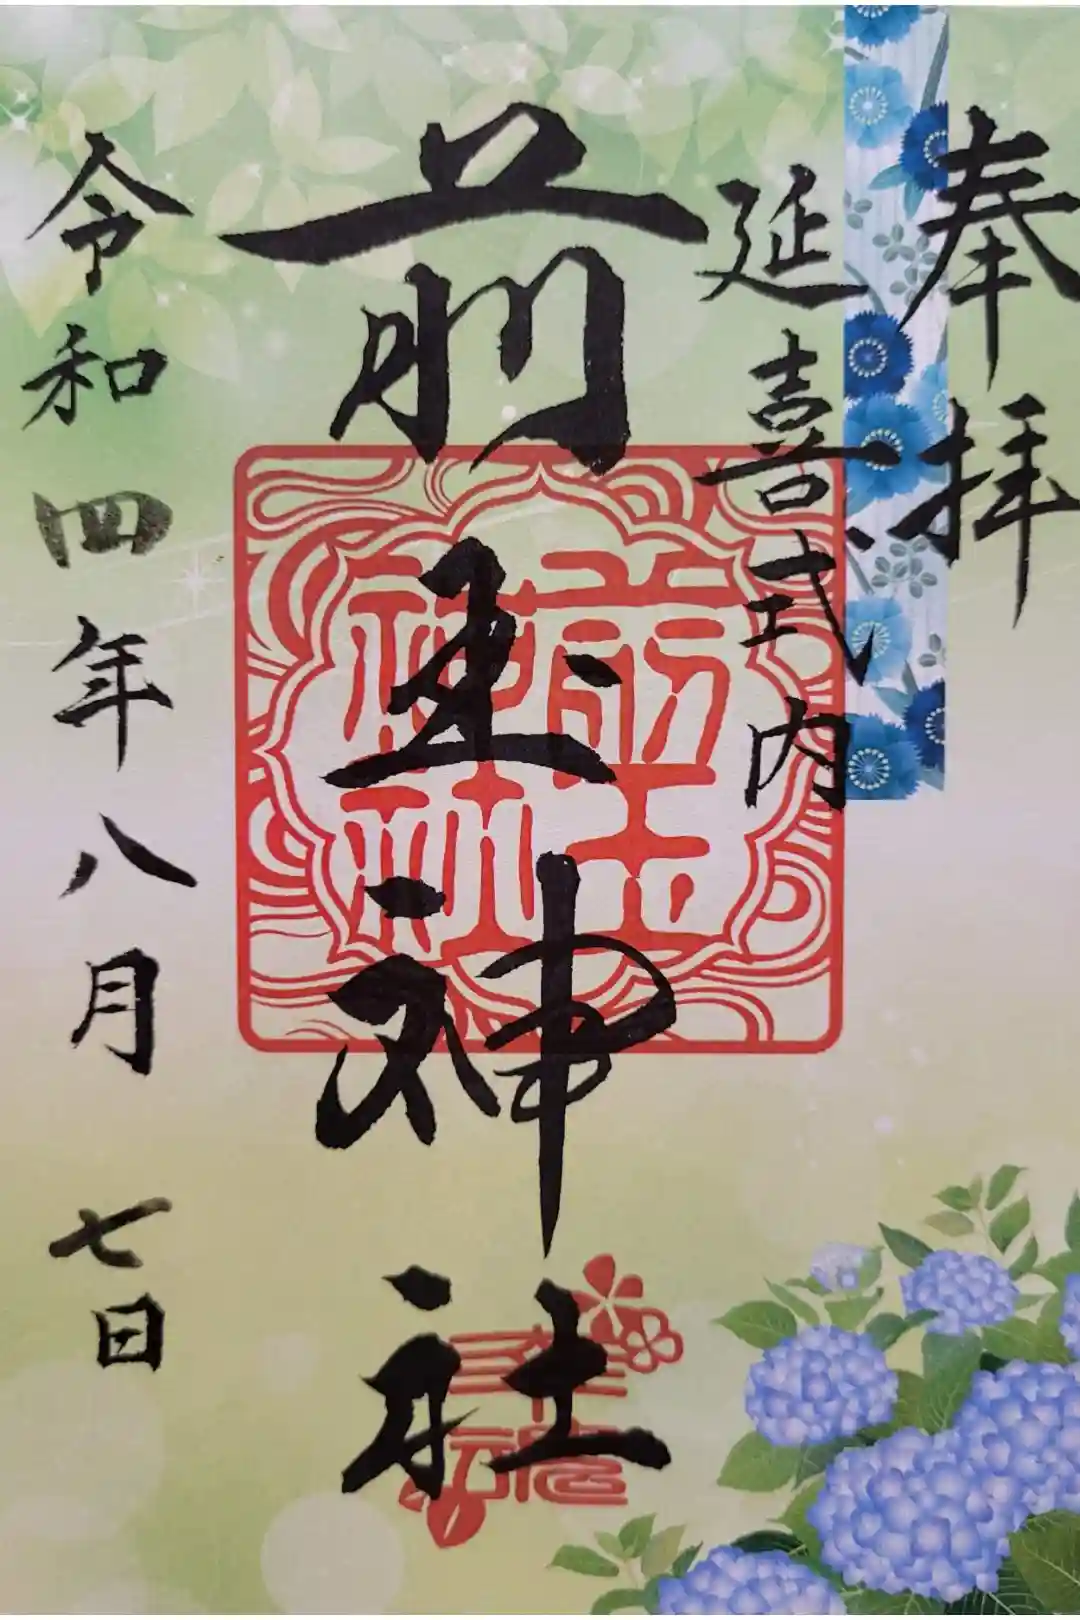 奉拝
延喜式内
前玉神社
令和四年八月七日
前玉
神社